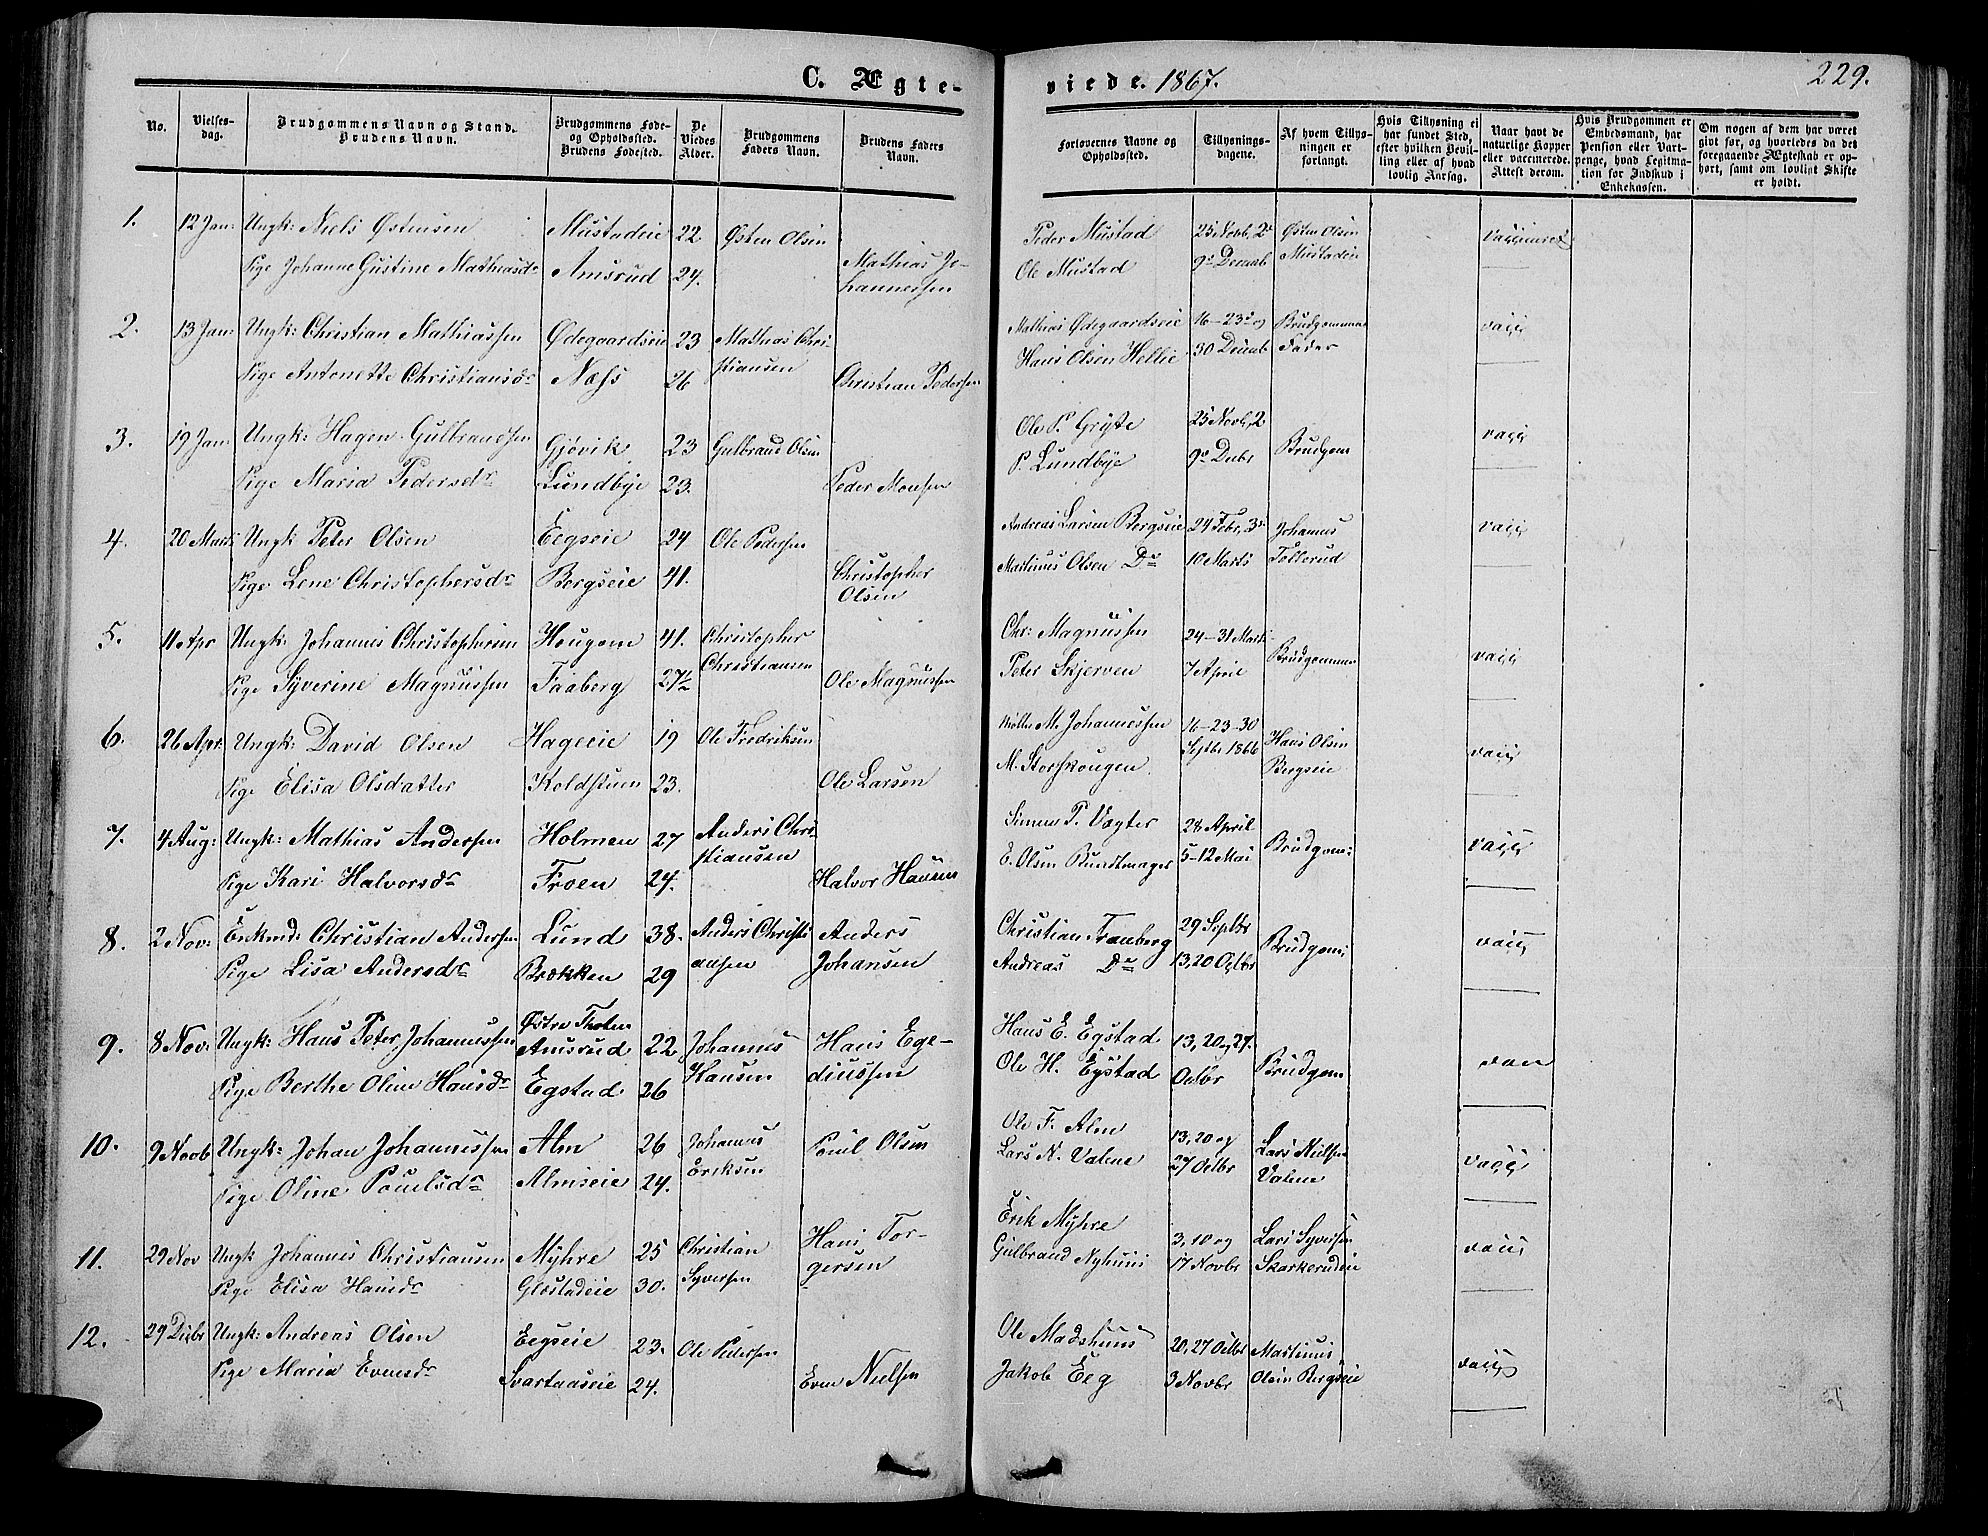 C. Ægte-
viede. 1867.
229.
No.
Vielses-
dag.
Brudgommens Navn og Stand.
Brudens Navn.
Brudgommens Føde-
og Opholdssted.
Brudens Fødested.
De
Viedes
Alder.
Brudgommens
Faders Navn.
Brudens Faders
Navn.
Forlovernes Navne og
Opholdssted.
Tillysnings-
dagene.
Af hvem Tillys-
ningen er
forlangt.
Hvis Tillysning ei
har fundet Sted,
efter hvilken Bevil-
ling eller af hvad
lovlig Aarsag.
Naar havt de
naturlige Kopper
eller vaccinerede.
Attest derom.
Hvis Brudgommen er
Embedsmand, har
Pension eller Vart-
penge, hvad Legitima-
tion for Indskud i
Enkekassen.
Om nogen af dem har været
givt før, og hvorledes da det
foregaaende Ægteskab er op-
hørt, samt om lovligt Skifte
er holdt.
1. 12 Jan: Ungk: Niels Østensen Mustadeie 22 Østen Olsen
Pige Johanne Gustine Mathiasdr Amsrud 24. Mathias Jo-
hannessen
Peder Mustad 25 Novb, 2 Østen Olsen
Ole Mustad 9 Decmb Mustadeie
2. 13 Jan: Ungk: Christian Mathiassen Ødegaardseie 23 Mathias Chri-
stiansen
Pige Antonette Christiansdr Næss 26 Christian Pedersen
Mathias Ødegaardseie 16-23 og Brudgommens vacc
Hans Olsen Hellie 30 Decmb Fader
3. 19 Jan: Ungk: Hagen Gulbrandsen Gjøvik 23 Gulbrand Olsen
Pige Maria Pedersdr Lundbye 23. Peder Monsen
Ole P. Gryte 25 Novb, 2 vacc
P. Lundbye 9 Decbr Brudgom
4. 20 Marts Ungk Peter Olsen Eegseie 24 Ole Pedersen
Pige Lene Christophersdr Bergseie 41. Christopher
Olsen
Andreas Larsen Bergseie 24 Febr, 3 Johannes vacc
Martinus Olsen Do 10 Marts Tollerud
5. 11 Apr Ungk: Johannes Christophersen Hougom 41. Christopher
Christiansen
Pige Syverine Magnussen Faaberg 27½ Ole Magnussen
Chr: Magnussen 24-31 Marts
Peter Skjerven 7 April Brudgommen vacc
6. 26 Apr: Ungk: David Olsen Hageeie 19 Ole Fredriksen
Pige Elisa Olsdatter Koldstuen 23. Ole Larsen
M. Johannessen 16-23-30
Septbr 1866 Hans Olsen
M. Storskougen Bergseie vacc
7. 4 Aug: Ungk: Mathias Andersen Holmen 27 Anders Chri-
stiansen
Pige Kari Halvorsdr Froen 24. Halvor Hansen
Simen P. Vegter 28 April
E. Olsen Bundtmager 5-12 Mai Brudgom: vacc
8. 2 Nov: Enkmd: Christian Andersen Lund 38. Anders Christi
ansen Anders
Pige Lisa Andersdr Brækken 29 Johansen
Christian Frauberg 29 Septbr
Andreas Do 13, 20 Octbr Brudgom: vacc
9. 8 Nov: Ungk: Hans Peter Johannessen Østre Thoten
Amsrud 22 Johannes
Hansen Hans Ege-
diussen
Pige Berthe Oline Hansdr Egstad 26
Hans E. Egstad. 13, 20 og 27.
Ole H. Egstad Octbr Brudgom
10. 9 Novb Ungk: Johan Johannessen Alm 26 Johannes
Eriksen Poul Olsen
Pige Oline Poulsdr Almseie 24.
Ole F. Alm 13, 20 og Lars Nielsen
Lars N. Valene 27 Octbr Valene vacc
11. 29 Nov Ungk Johannes Christiansen Myhre 25 Christian
Syversen Hans Tor-
gersen
Pige Elisa Hansdr Glæstadeie 30.
Erik Myhre 3, 10 og Lars Syversen
Gulbrand Nyhuus 17 Novbr Skarkerudeie vacc
12. 29 Decbr Ungk: Andreas Olsen Eegseie 23. Ole Pedersen
Pige Maria Evensdr Svartaaseie 24. Even Nielsen
Ole Madshuus 20, 27 Octbr Martinus
Jakob Eeg 3 Novbr Olsen Bergseie vacc